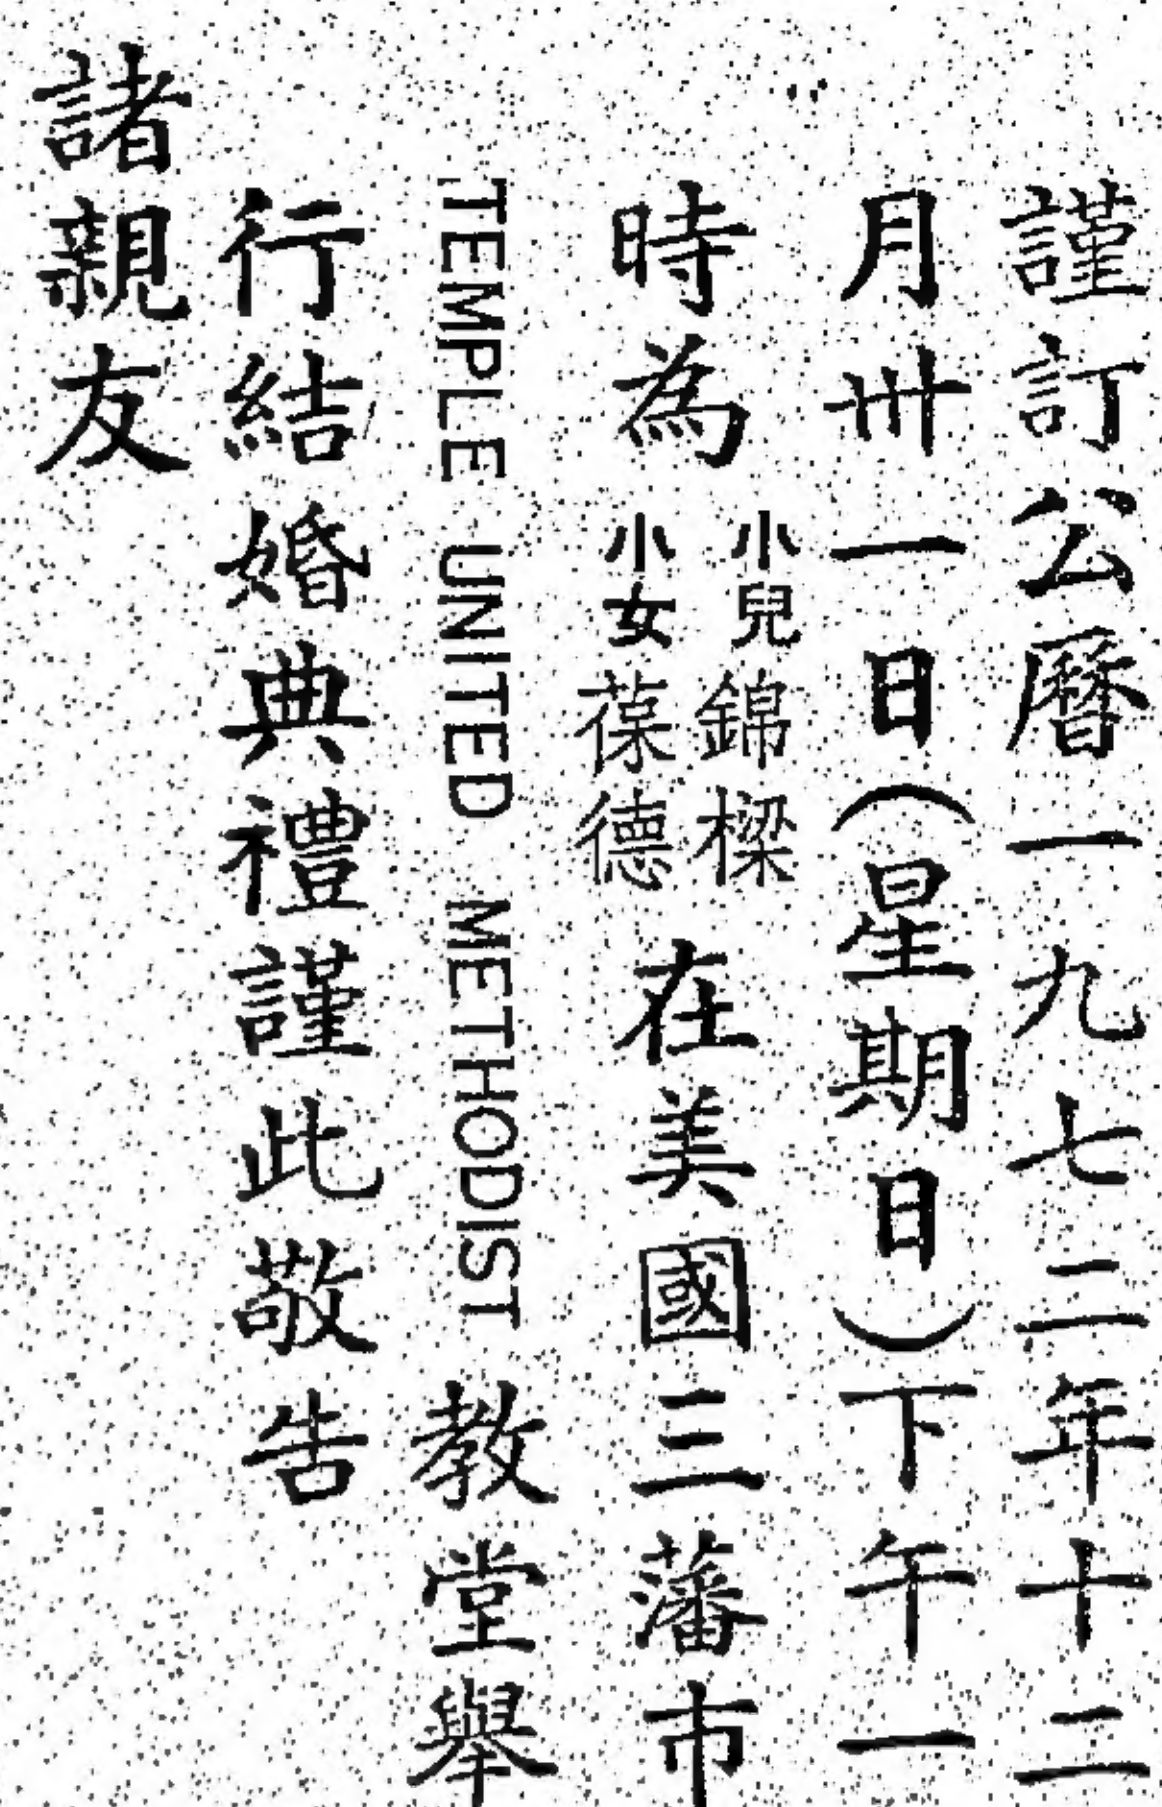 謹訂公曆一九七二年十二
月卅一日(星期日)下午一
時為小兒錦樑小女葆德在美國三藩市
TEMPLE UNITED METHODIST 教堂舉
行結婚典禮謹此敬告
諸親友